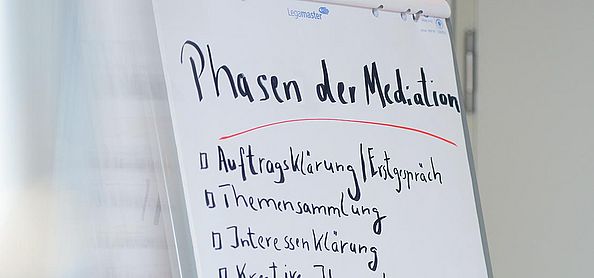 Legamaster
Phasen der Mediation
Auftragsklärung/Erstgespräch
Themensammlung
Interessenklärung
Kreative